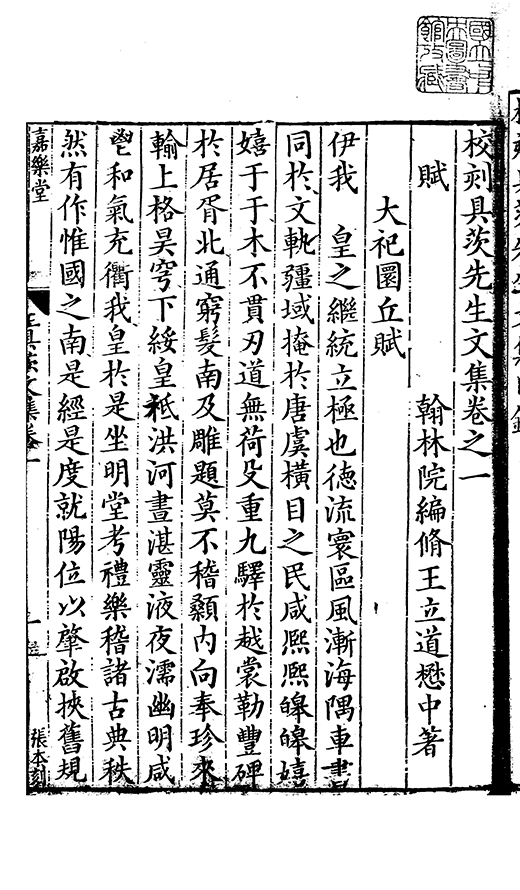 國立中央圖書館收藏
校刻具茨先生文集卷之一
賦　翰林院編脩王立道懋中著
大祀圜丘賦
伊我　皇之繼統立極也德流寰區風漸海隅車書
同於文軌疆域掩於唐虞橫目之民咸熈熈皞皞嬉
嬉于于木不貫刃道無荷殳重九驛於越裳勒豐碑
於居胥北通窮髮南及雕題莫不稽顙內向奉珍來
輸上格昊穹下綏皇祗洪河晝湛靈液夜濡幽明咸
鬯和氣充衢我皇於是坐明堂考禮樂稽諸古典秩
然有作惟國之南是經是度就陽位以肇啟挾舊規
嘉樂堂
王具茨文集卷一
張本刻